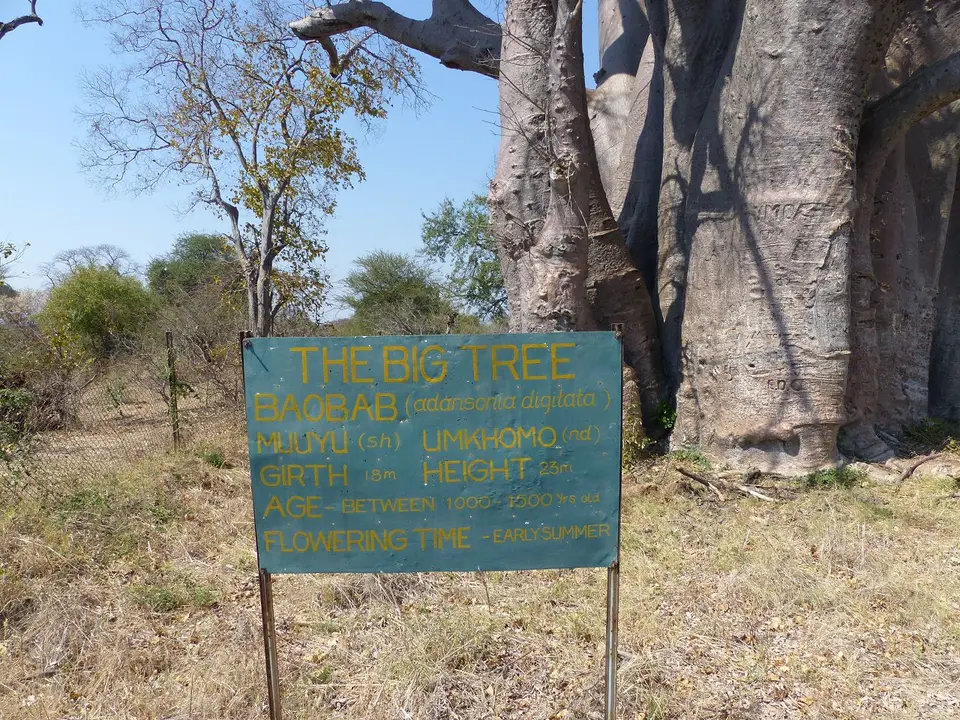 THE BIG TREE
BAOBAB (adansonia digitata)
MUUYU (sh) UMKHOMO (nd)
GIRTH 18m HEIGHT 23m
AGE - BETWEEN 1000-1500 Yrs old
FLOWERING TIME - EARLY SUMMER